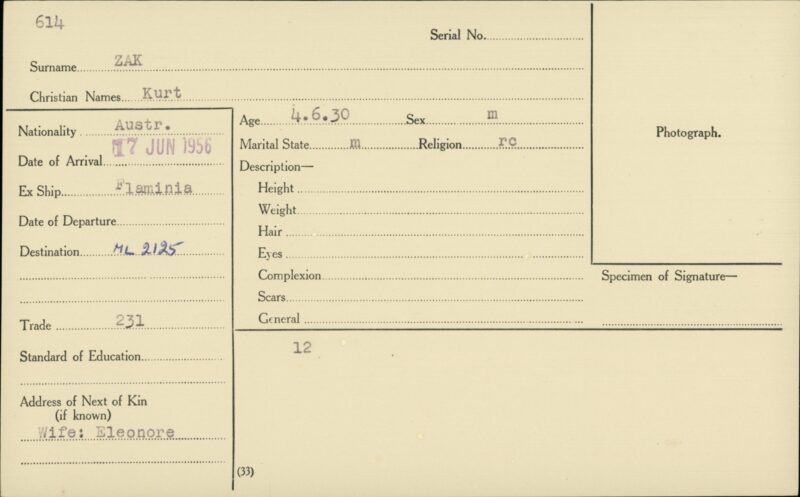 614
Serial No.
Surname ZAK
Christian Names Kurt
Nationality Austr.
Date of Arrival 17 JUN 1956
Ex Ship Flaminia
Date of Departure
Destination ML 2125
Trade 231
Standard of Education
Address of Next of Kin
(if known)
Wife: Eleonore
Age 4.6.30 Sex m
Marital State m Religion rc
Description—
Height
Weight
Hair
Eyes
Complexion
Scars
General
12
(33)
Photograph.
Specimen of Signature—